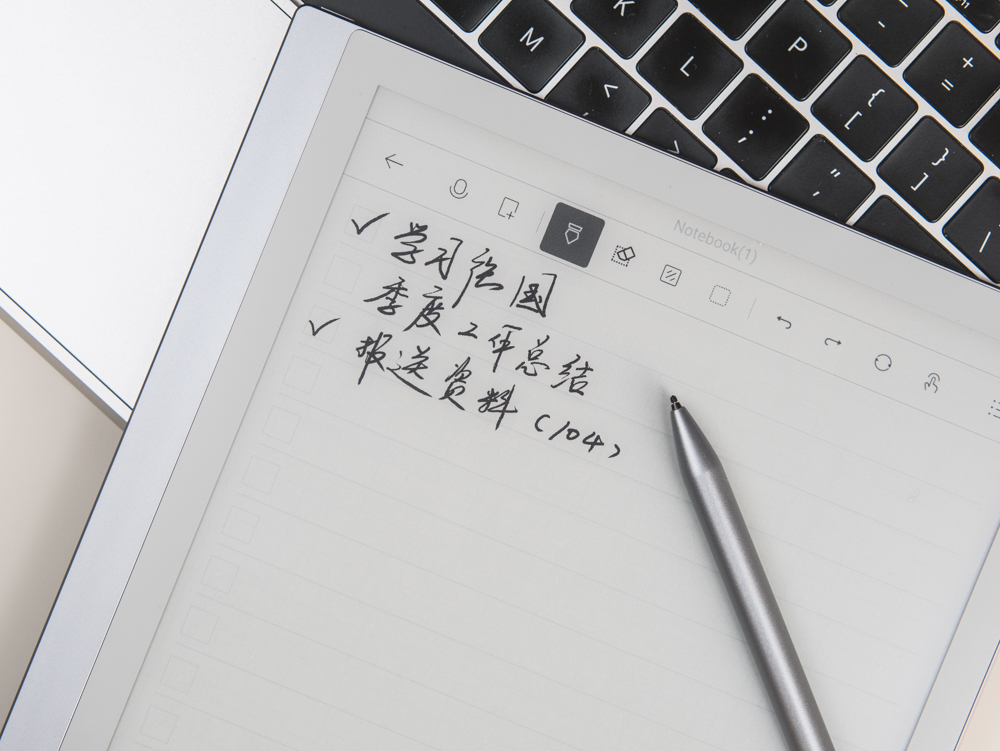 _ -
+ =
P { [ } ] |
K L : ; " '
M < >
Notebook(1)
✓ 学习强国
季度工作总结
✓ 报送资料(104)